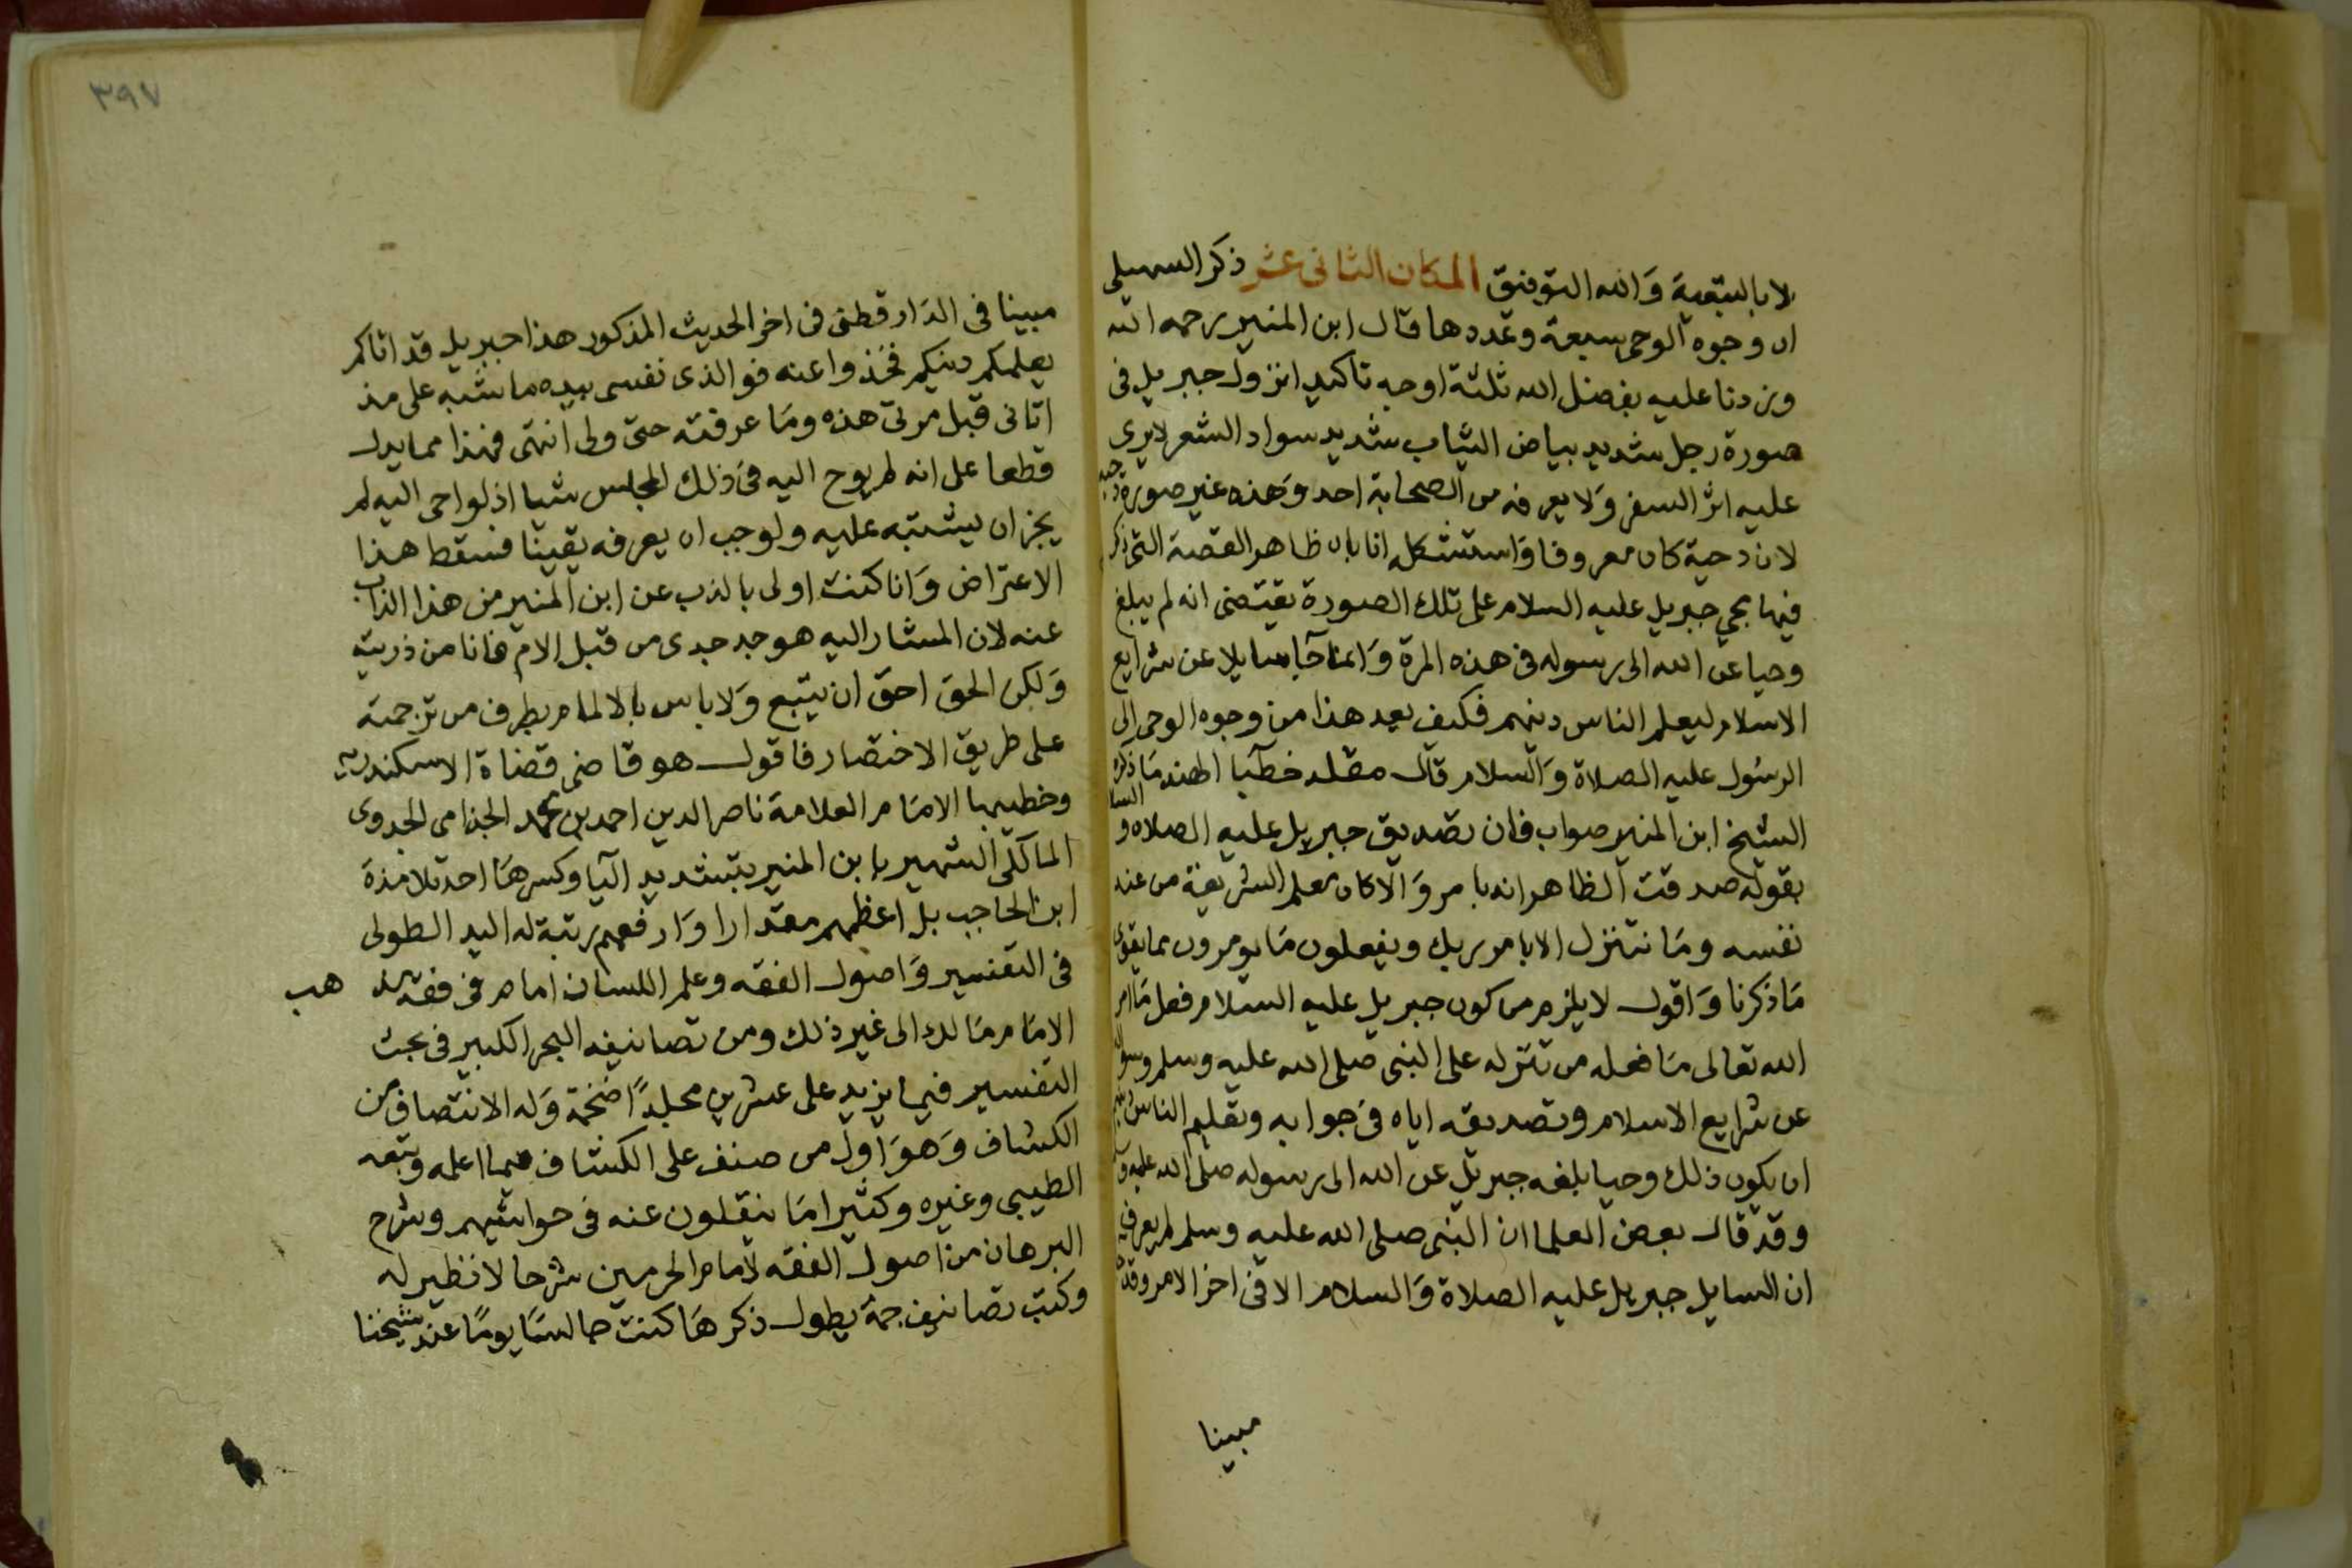 لا بالتبعية وَالله التوفيق المكان الثانى عشر ذكر السهيلى
ان وجوه الوحى سبعة وعددها قال ابن المنير رحمه الله
وزدنا عليه بفضل الله ثلثة اوجه تاكيد انزول جبريل فى
صورة رجل شديد بياض الثياب شديد سواد الشعر لايرى
عليه اثر السفر وَلا يعرفه من الصحابة احد وَهذه غير صورة دحية
لان دحية كان معروفا وَاستشكل انا بان ظاهر القصة التى ذكر
فيها مجى جبريل عليه السلام على تلك الصورة يقتضى انه لم يبلغ
وحيا عن الله الى رسوله فى هذه المرة وَانما جا سايلا عن شرايع
الاسلام ليعلم الناس دينهم فكيف يعد هذا من وجوه الوحى الى
الرسُول عليه الصلاة وَالسلام قال مقلد خطبا الهند مَا ذكره
الشيخ ابن المنير صواب فان تصديق جبريل عليه الصلاه و السلا
بقوله صدقت الظاهر انه بامر وَالا كان معلم الشريعة من عند
نفسه ومَا نتنزل الا بامر ربك ويفعلون مَا يومرون مما يقوى
مَا ذكرنا وَاقول لا يلزم من كون جبريل عليه السلام فعل مَا امر
الله تعالى مَا فعله من تنزله على النبى صلى الله عليه وسلم وسواله
عن شرايع الاسلام وتصديقه اياه فى جوابه وتعليم الناس دينهم
ان يكون ذلك وحيا بلغه جبريل عن الله الى رسوله صلى الله عليه وسلم
وقد قال بعض العلما ان النبى صلى الله عليه وسلم لم يعرف
ان السايل جبريل عليه الصلاة وَالسلام الا فى اخر الامر وقد
مبينا
٣٩٧
مبينا فى الدَار قطنى فى اخر الحديث المذكور هذا جبريل قد اتاكم
يعلمكم دينكم فخذوا عنه فوالذى نفسى بيده ما شبه على منذ
اتانى قبل مرتى هذه ومَا عرفته حتى ولى انتهى فهذا مما يدل
قطعا على انه لم يوح اليه فى ذلك المجلس شيا اذ لو اوحى اليه لم
يجز ان يشتبه عليه ولوجب ان يعرفه يقينا فسقط هذا
الاعتراض وَانا كنت اولى بالذب عن ابن المنير من هذا الذاب
عنه لان المشار اليه هو جد جدى من قبل الام فانا من ذريته
وَلكن الحق احق ان يتبع وَلا باس بالالمام بطرف من ترجمته
على طريق الاختصار فاقول هو قاضى قضاة الاسكندرية
وخطيبها الامَام العلامة ناصر الدين احمد بن محمد الجذامى الجدوى
المالكى الشهير بابن المنير بتشديد اليا وكسرهَا احد تلامذة
ابن الحاجب بل اعظمهم مقدارا وَارفعهم رتبة له اليد الطولى
فى التفسير وَاصول الفقه وعلم اللسان امام فى فقه مذ هب
الامَام مَالك الى غير ذلك ومن تصانيفه البحر الكبير فى بحث
التفسير فيما يزيد على عشرين مجلدًا ضخمة وَله الانتصاف من
الكشاف وَهوَ اول من صنف على الكشاف فيما اعلمه وتبعه
الطيبى وغيره وكثيرا مَا ينقلون عنه فى حواشيهم وشرح
البرهان من اصول الفقه لامام الحرمين شرحا لا نظير له
وكتب تصانيف جمة يطول ذكرهَا كنت جالسًا يومًا عند شيخنا